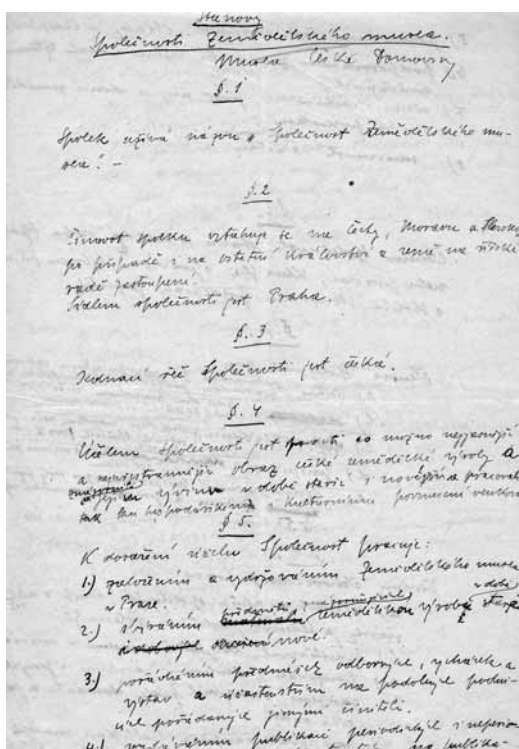 Stanovy
Společnosti Zemědělského musea.
Musea České Domoviny
§. 1
Spolek užívá názvu „Společnost Zemědělského mu-
sea“. -
§.2
Činnost spolku vztahuje se na Čechy, Moravu a Slezsko
po případě i na ostatní království a země na říšské
radě zastoupené.
Sídlem společnosti jest Praha.
§. 3
Jednací řeč Společnosti jest česká.
§. 4
Účelem Společnosti jest co možno nejjasnější
a nejvšestrannější obraz české zemědělské výroby a
vývinu v době starší i novější a pracovati
tak ku hospodářskému kulturnímu povznesení venkova
§ 5.
K dosažení účelu Společnost pracuje:
1.) založením a vydržováním Zemědělského musea
v Praze.
2.) sbíráním předmětů zemědělskou výrobu v době starší
nové.
3.) pořádáním přednášek odborných, vycházek a
výstav a účastenstvím na podobných podni-
cích pořádaných jinými činiteli.
4.) vydáváním publikací periodických i neperio-